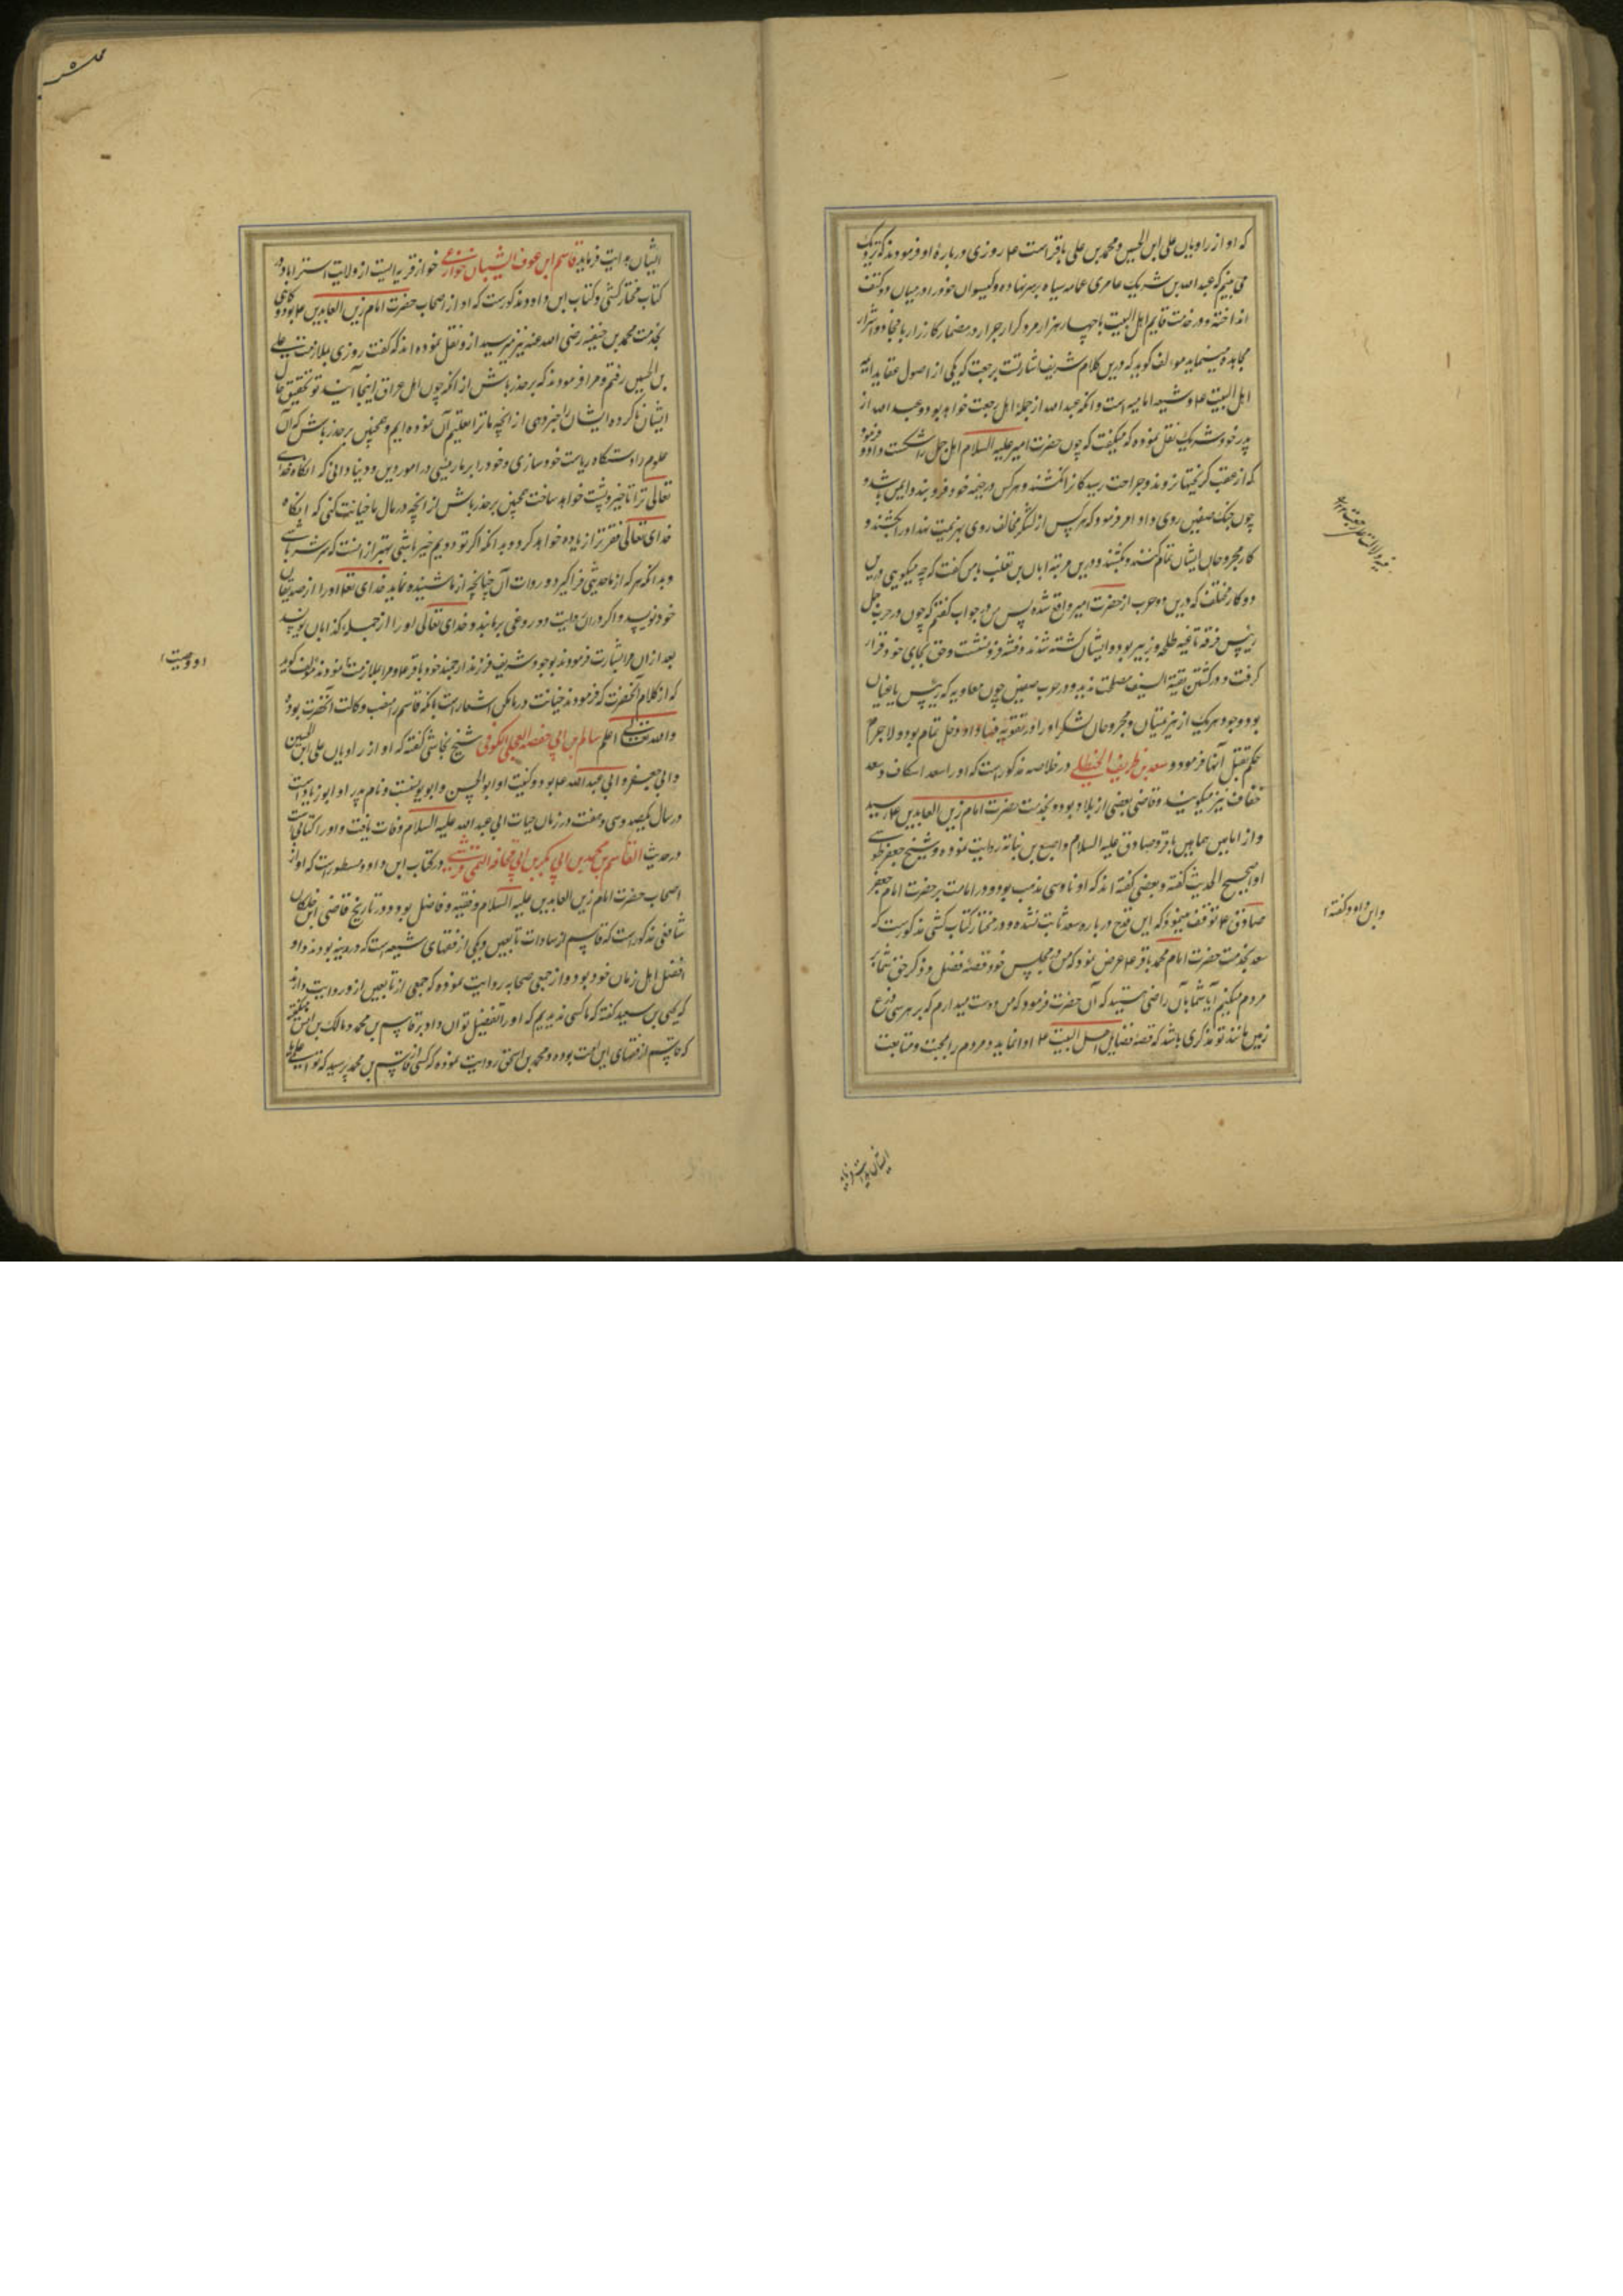 که او از راویان علی ابن الحسین و محمد بن علی باقر است ع روزی درباره او فرمودند که نزدیک
می بینم که عبد الله بن شریک عامری عمامه سیاه بر سر نهاده و کیسوان خود را در میان دو کتف
انداخته و در خدمت قایم اهل البیت با چهار هزار مرد کرار جرار در مضمار کارزار با فجار و اشرار
مجاهده مینماید مولف کوید که درین کلام شریف اشارتست برجعت که یکی از اصول عقاید ائمه
اهل البیت ع و شیعه امامیه است و انکه عبد الله از جمله اهل رجعت خواهد بود و عبد الله از
پدر خود شریک نقل نموده که میکفت که چون حضرت امیر علیه السلام اهل جمل را شکست داد و فرمود
که از عقب کریختها نروند و جراحت رسیدکان را نکشند و هر کس در خیمه خود فرو بندد ایمن باشد و
چون جنک صفین روی داد امر فرمود که هر کس از لشکر مخالف روی بهزیمت نهد او را بکشند و
کار مجروحان ایشان تمام کنند و بکشند و درین مرتبه ابان بن تغلب بامن کفت که چه میکویی درین
دو کار مختلف که درین دو حرب از حضرت امیر واقع شده پس من در جواب کفتم که چون در حرب جمل
رییس فرقه باغیه طلحه و زبیر بود و ایشان کشته شدند و فتنه فرو نشست و حق بجای خود قرار
کرفت و در کشتن بقیة السیف مصلحت ندید و در حرب صفین چون معاویه که رییس باغیان
بود و وجود هر یک از هزیمتیان و مجروحان لشکر او را در تقویه فتنه و فساد او دخل تمام بود و لاجرم
حکم بقتل آنها فرمود و سعد بن ظریف الحنظلی در خلاصه مذکور است که او را سعد اسکاف و سعد
خفاف نیز میکویند و قاضی بعضی از بلاد بود و بخدمت حضرت امام زین العابدین ع رسید
و از امامین همامین باقر و صادق علیه السلام و اصبغ بن نباته روایت نموده و شیخ جعفر طوسی
او را صحیح الحدیث کفته و بعضی کفته اند که او ناوسی مذهب بود و در امامت بر حضرت امام جعفر
صادق ع توقف مینمود که این قدح درباره سعد ثابت نشده و در مختار کتاب کشی مذکور است که
سعد بخدمت حضرت امام محمد باقر ع عرض نمود که من در مجلس خود قصه فضل و ذکر حق شما بر
مردم میکنم آیا شما بآن راضی هستید که آن حضرت فرمود که من دوست میدارم که بر هر سی ذرع
زمین مانند تو مذکری باشد که قصه فضایل اهل البیت ع ادا نماید و مردم را بمحبت و متابعت
و ابن داود کفته
ایشان هدایت فرماید قاسم ابن عوف الشیبان خوازمی خواز قریه ایست از ولایت استراباد و در
کتاب مختار کشی و کتاب ابن داود مذکور است که او از اصحاب حضرت امام زین العابدین ع بود و کاهی
بخدمت محمد بن حنیفه رضی الله عنه نیز میرسید از و نقل نموده اند که کفت روزی بملازمت علی
بن الحسین رفتم و مرا فرمودند که بر حذر باش از انکه چون اهل عراق اینجا آیند تو تحقیق حال
ایشان ناکرده ایشان را خبر دهی از آنچه ما ترا تعلیم آن نموده ایم و همچنین بر حذر باش که آن
علوم را دستکاه ریاست خود سازی و خود را بر ما ریسی در امور دین و دنیا دانی که انکاه خدای
تعالی ترا تاخیر و پشت خواهد ساخت همچنین بر حذر باش از آنچه در مال ما خیانت کنی که انکاه
خدای تعالی فقر ترا زیاده خواهد کرد و بدانکه اکر تو دویم خیر باشی بهتر از انست که سر شر باشی
و بدانکه هر که از ما حدیثی فرا کیرد و روات آن چنانچه از ما شنیده نماید خدای تعالی او را از صدیقان
خود نویسد و اکر در آن روایت دروغی بربندد خدای تعالی او را از جمله کذابان نویسد
بعد از آن مرا بشارت فرمودند بوجود شریف فرزند ارجمند خود باقر ع و مرا بملازمت نمودند مولف کوید
که از کلام آنحضرت که فرمودند خیانت در ما مکن اشعار است بانکه قاسم را منصب وکالت آنحضرت بوده
والله تعالی اعلم سالم بن ابی حفصه العجلی الکوفی شیخ نجاشی کفته که او از راویان علی ابن الحسین
و ابی جعفر و ابی عبد الله ع بود و کنیت او ابو الحسن و ابو یوسف و نام پدر او ابو زیاد است
در سال یکصد و سی و هفت در زمان حیات ابی عبد الله علیه السلام وفات یافت و او را کتابی است
در حدیث القاسم بن محمد بن ابی بکر بن ابی قحافه التیمی القرشی در کتاب ابن داود مسطور است که او از
اصحاب حضرت امام زین العابدین علیه السلام و فقیه و فاضل بود و در تاریخ قاضی ابن خلکان
شافعی مذکور است که قاسم از سادات تابعین و یکی از فقهای شیعه است که در مدینه بودند و او
افضل اهل زمان خود بود و از جمعی صحابه روایت نموده که جمعی از تابعین از و روایت دارند
که یحیی بن سعید کفته که ما کسی ندیدیم که او را تفضیل توان داد بر قاسم بن محمد و مالک بن انس میکفته
که قاسم از فقهای این امت بوده و محمد بن اسحق روایت نموده که کسی از قاسم بن محمد پرسید که تو